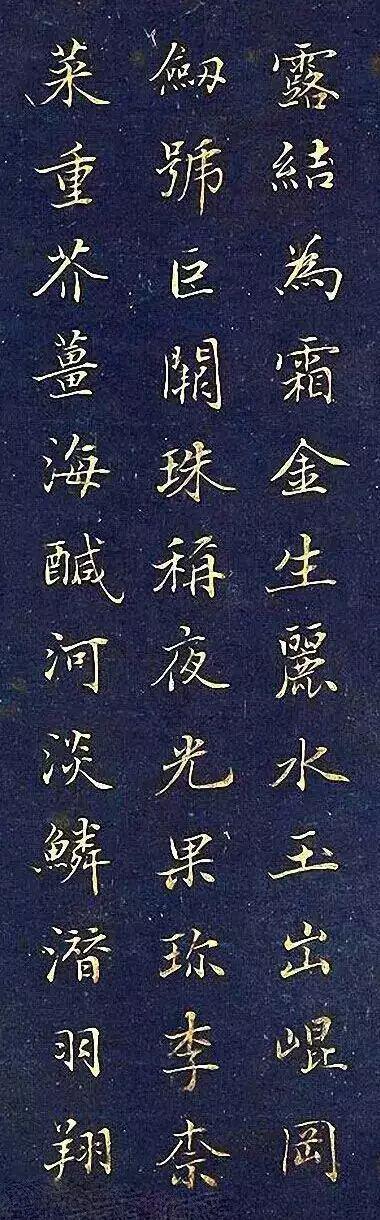 露結為霜金生麗水玉出崐岡
劔號巨闕珠稱夜光果珎李柰
菜重芥薑海醎河淡鱗潛羽翔